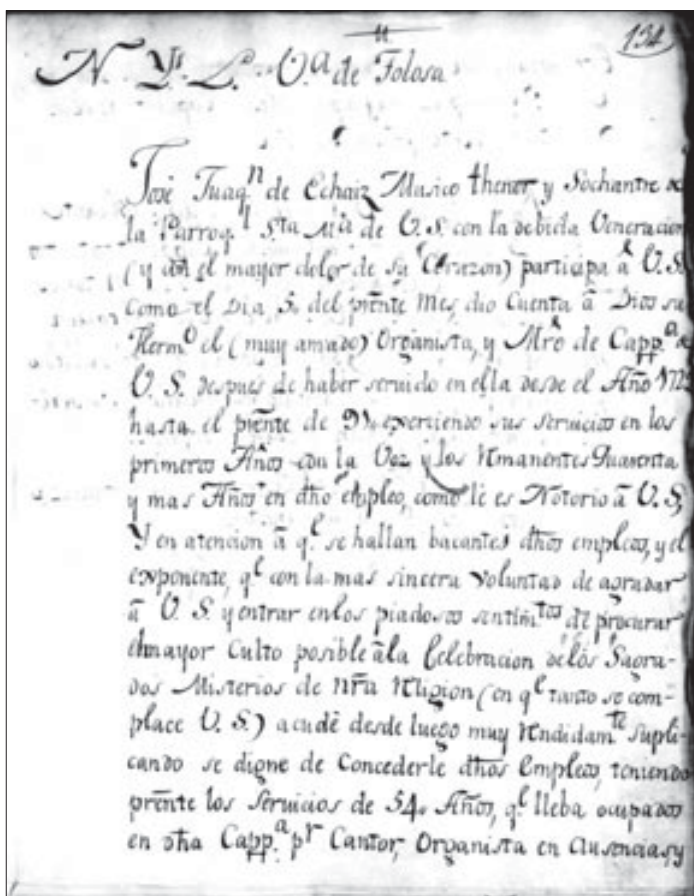 134
N. Y. L. V.ª de Tolosa
José Juaq.n de Echaiz Musico thenor y Sochantre de
la Parroq.l S.ta M.a de V. S. con la debida Veneracion
(y con el mayor dolor de su Corazon) participa â V. S.
como el Dia 5. del pñte Mes dio Cuenta â Dios su
Herm.o el (muy amado) Organista, y Mrõ de Capp.a de
V. S. despues de haber servido en ella desde el Año
hasta el pñte de exerciendo sus servicios en los
primeros Años con la Voz y los Rmanentes Quarenta
y mas Años en dho empleo, como le es Notorio â V. S,
Y en atencion â q.e se hallan bacantes dhos empleos, y el
exponente, q.e con la mas sincera voluntad de agradar
â V. S. y entrar en los piadosos sentim.tos de procurar
el mayor Culto posible âla Celebracion delos Sagra-
dos Misterios de nrã Religion (en q.e tanto se com-
place V. S.) acude desde luego muy Rndidam.te supli-
cando se digne de Concederle dhos Empleos, teniendo
prẽnte los Servicios de 54. Años, q.e lleba ocupados
en dha Capp.a p.r Cantor, Organista en Ausencias, y